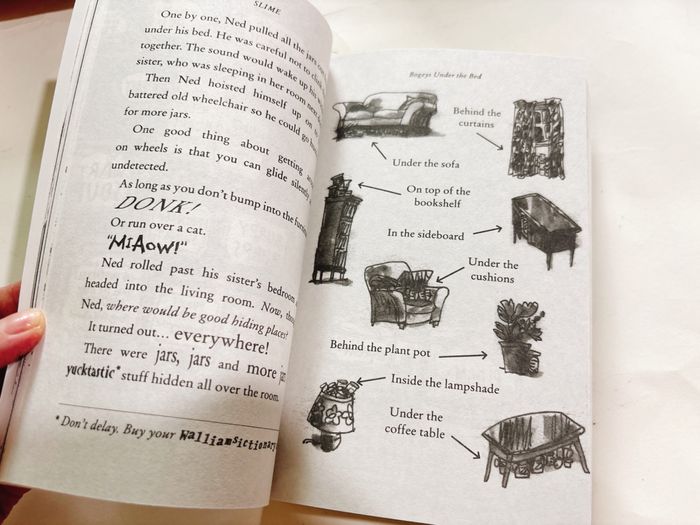 SLIME
One by one, Ned pulled all the jars
under his bed. He was careful not to
together. The sound would wake up
sister, who was sleeping in her room
Then Ned hoisted himself up
battered old wheelchair so he could go
for more jars.
One good thing about getting
on wheels is that you can glide silently
undetected.
As long as you don't bump into the
DONK!
Or run over a cat.
"MiAow!"
Ned rolled past his sister's bedroom
headed into the living room. Now,
Ned, where would be good hiding places?
It turned out... everywhere!
There were jars, jars and more
yucktastic* stuff hidden all over the room.
*Don't delay. Buy your Walliamsictionary
Bogeys Under the Bed
Behind the
curtains
Under the sofa
On top of the
bookshelf
In the sideboard
Under the
cushions
Behind the plant pot
Inside the lampshade
Under the
coffee table